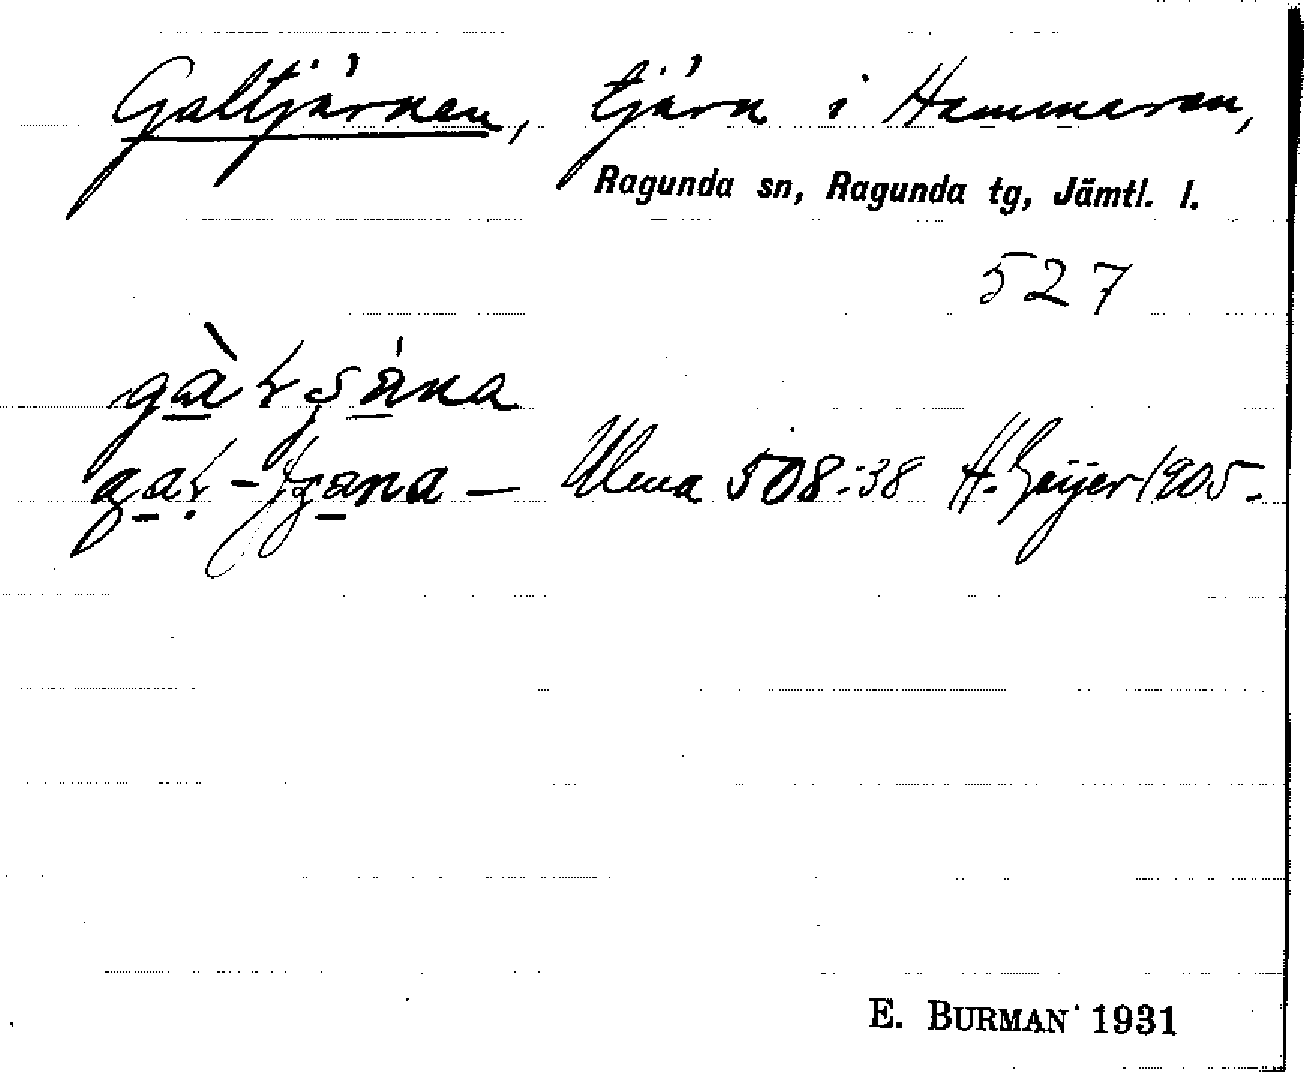 Galtjärnen, tjärn i Hammaren,
Ragunda sn, Ragunda tg, Jämtl. l.
527
Ulma 508:38 H. Geijer 1905.
E. BURMAN 1931